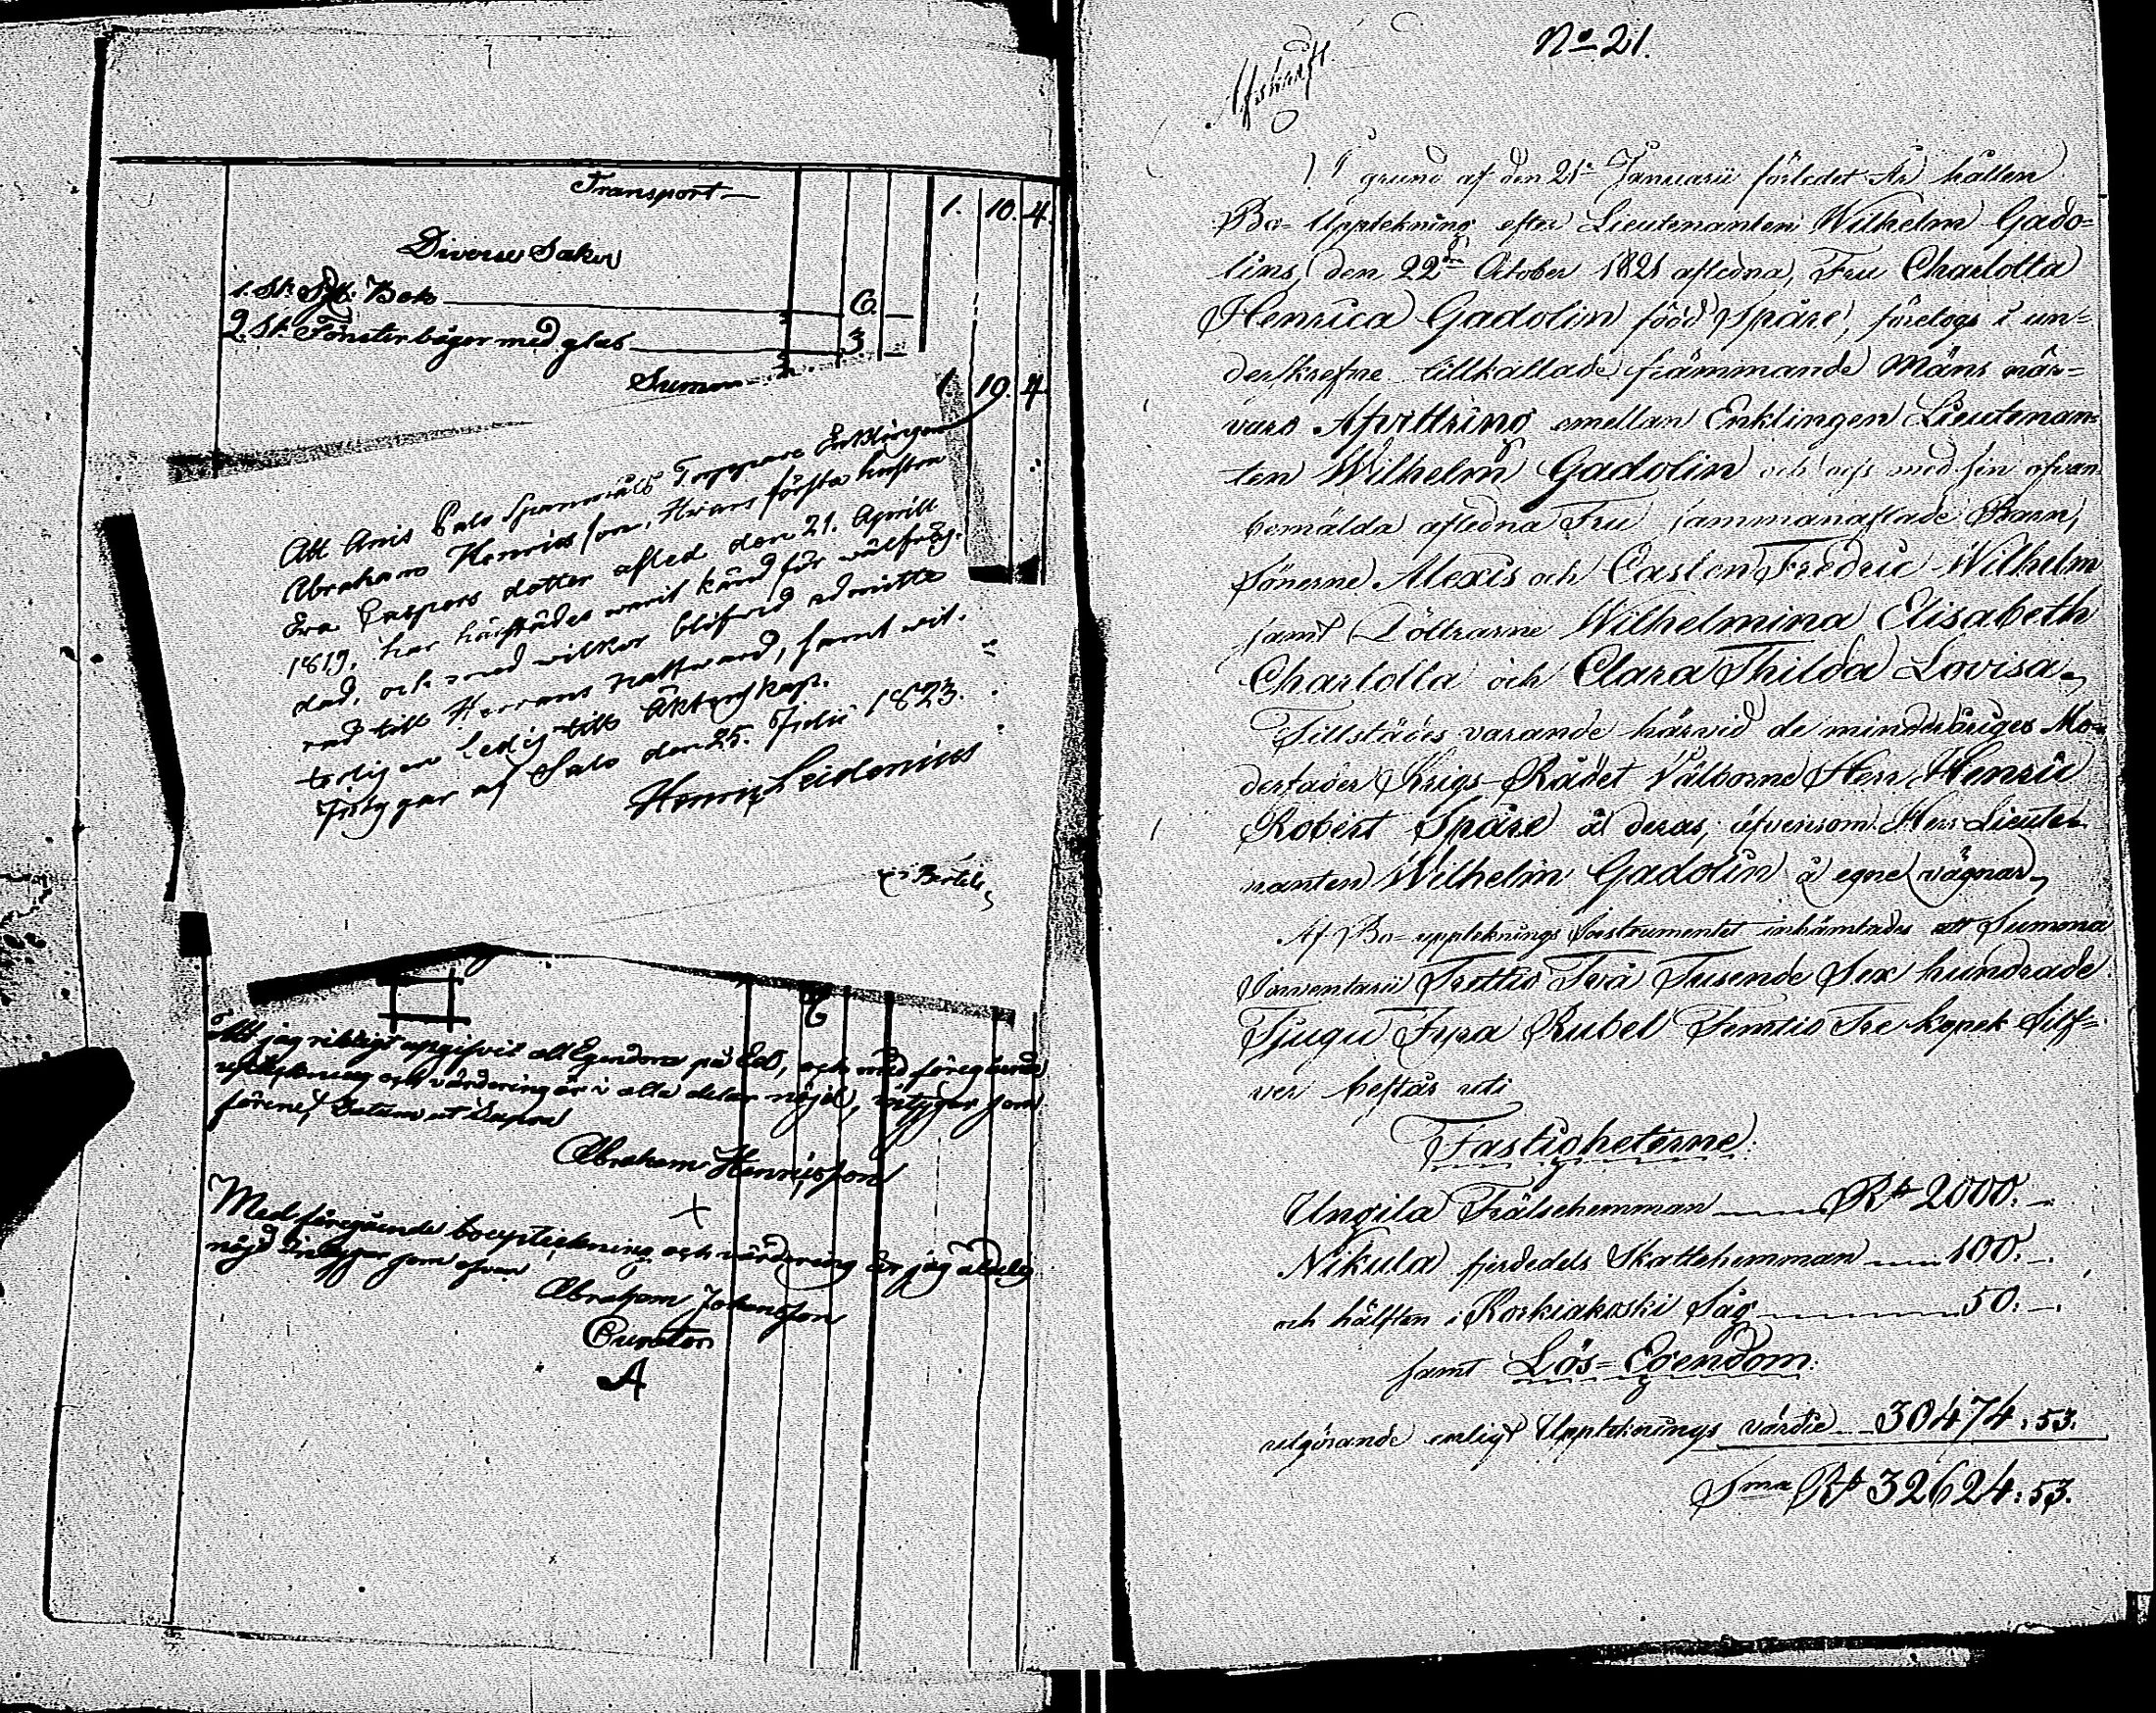 Transport 1. 10. 4.
Diverse Saker
1. St. Bok 6. —
2. St. Fönsterbågor med glas 3 —
Summa 1. 19. 4
Att Anis Salo Torppare Enklingen
Abraham Henricsson, Hvars första hustru
Eva Caspers dotter afled den 21. Aprill
1819, har härstädes warit känd för wälfräg-
dad, och med wilkor blifvid admitte
rad till Herrans Nattward, samt wit-
terligen Ledig till Äktenskap.
Intygar af Salo den 25. Julii 1823.
Henric Leidenius
Bertils
Att jag riktigt upgifvit all Egendom på Ed, och med föregående
upteckning och värdering är i alla delar nöjd, intygar som
förene Datum ut Supra
Abraham Henricsson
Med föregående bouptekning och värdering är jag aldeles
nögd Intygar som ofvan
Abraham Johansson
Curator
A
No 21.
Afskrift.
På grund af den 21 Januarii förledet År hållen
Bo-Upptekning efter Lieutenanten Wilhelm Gado-
lins, den 22 October 1821 afledna, Fru Charlotta
Henrica Gadolin född Spåre, företogs i un-
derskrefne tillkallade främmande Mäns när-
varo Afvittring emellan Enklingen Lieutenan-
ten Wilhelm Gadolin och dess med sin ofvan
bemälda afledna Fru sammanaflade Barn,
Sönerne Alexis och Carl Fredric Wilhelm
samt Döttrarne Wilhelmina Elisabeth
Charlotta och Clara Thilda Lovisa.
Tillstädes varande härvid de minderåriges Mo-
derfader Krigs-Rådet Välborne Herr Henric
Robert Spåre å deras, äfvensom Herr Lieute-
nanten Wilhelm Gadolin å egne vägnar.
Af Bo-upptecknings Instrumentet inhämtades att Summa
Inventarii Trettio Två Tusende Sex hundrade
Tjugu Fyra Rubel Femtio Tre kopek Silf-
ver består uti
Fastigheterne:
Ungila Frälsehemman R 2000. —
Nikula fjerdedels Skattehemman 100. —
och hälften i Korkiakoski Såg 50. —
samt Lös-Egendom:
utgörande enligt Upptecknings värde 30474: 53.
Sma R 32624: 53.